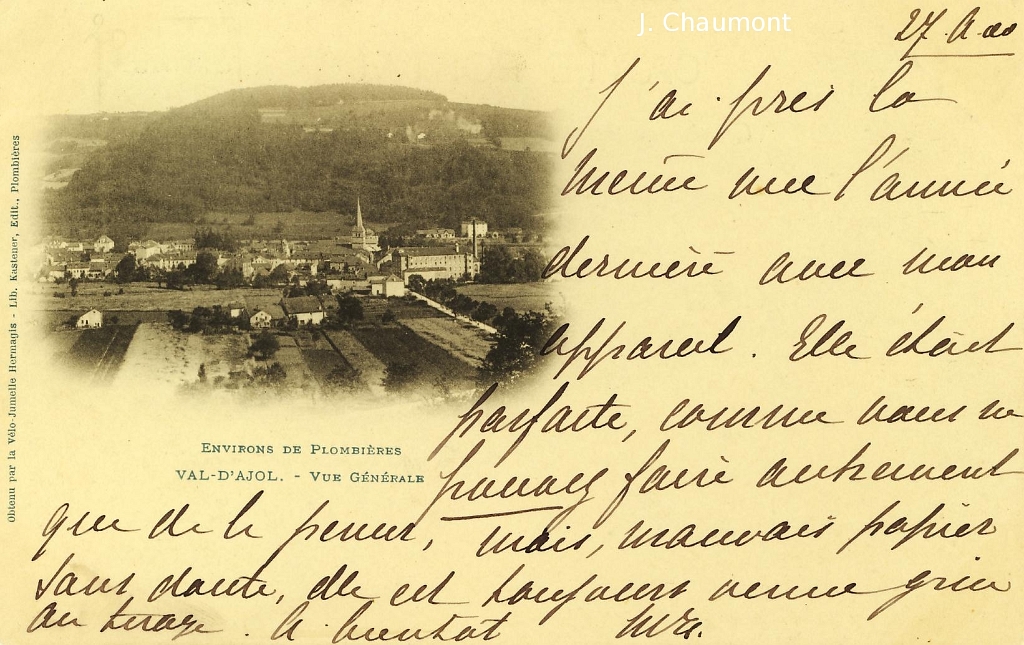 J. Chaumont
27. A 00
J'ai pris la
même vue l'année
dernière avec mon
appareil. Elle était
parfaite, comme vous ne
pouvez faire autrement
que de le penser, mais, mauvais papier
sans doute, elle est toujours venue grise
au tirage. A bientôt
ENVIRONS DE PLOMBIÈRES
VAL-D'AJOL. - VUE GÉNÉRALE
Obtenu par la Vélo-Jumelle Hermagis - Lib. Kastener, Edit., Plombières